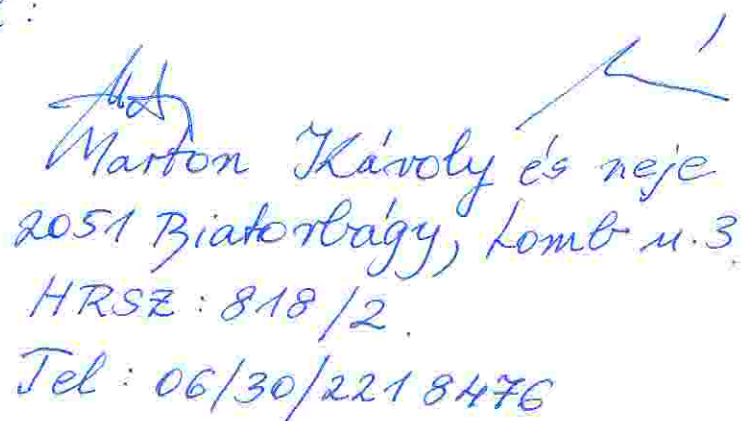 Marton Károly és neje
2051 Biatorbágy, Lomb u. 3.
HRSZ: 818/2.
Tel: 06/30/221 8476